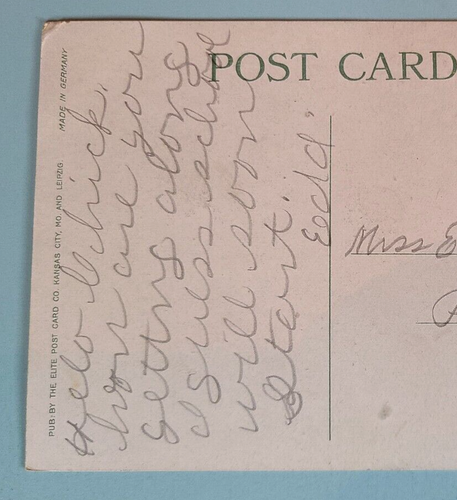 POST CARD
MADE IN GERMANY
PUB. BY THE ELITE POST CARD CO. KANSAS CITY, MO. AND LEIPZIG.
Helo Chick.
how are you
getting along
I guess school
will soon
start.
Miss E